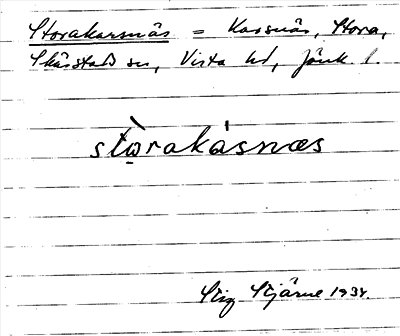 Storakarsnäs = Karsnäs, Stora,
Skärstads sn, Vista hd, Jönk. l.
stòrakásnæs
Stig Stjärne 1934.